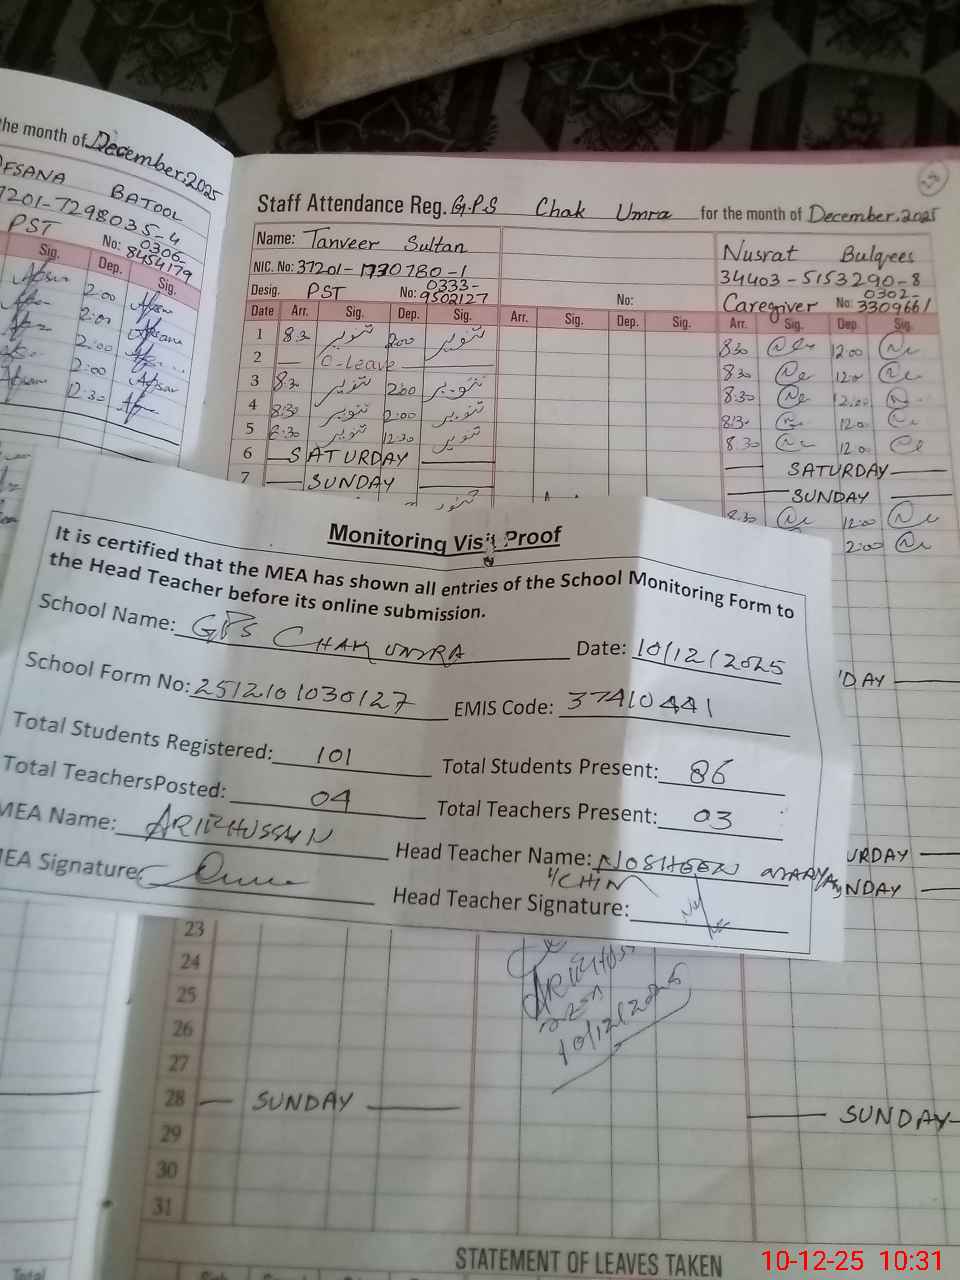 the month of December, 2025
AFSANA BATOOL
7201-7298035-4
PST No: 0306-8454179
Sig. Dep. Sig.
2:00
2:00
2:00
2:00
12:30
Staff Attendance Reg. G.P.S Chak Umra for the month of December, 2025
Name: Tanveer Sultan
NIC. No: 37201-1730780-1
Desig. PST No: 0333-9502127
No:
Nusrat Bulqees
34403-5153290-8
Caregiver No: 0302-3309661
Date Arr. Sig. Dep. Sig. Arr. Sig. Dep. Sig. Arr. Sig. Dep. Sig.
1 8:30 تنویر 2:00 تنویر 8:30 12:00
2 C-Leave 8:30 12:00
3 8:30 تنویر 2:00 تنویر 8:30 12:00
4 8:30 تنویر 2:00 تنویر 8:30 12:00
5 8:30 تنویر 12:30 تنویر 8:30 12:00
6 SATURDAY SATURDAY
7 SUNDAY SUNDAY
8:30 12:00
2:00
Monitoring Visit Proof
It is certified that the MEA has shown all entries of the School Monitoring Form to
the Head Teacher before its online submission.
School Name: GPS CHAK UMRA Date: 10/12/2025
School Form No: 2512101030127 EMIS Code: 37410441
Total Students Registered: 101 Total Students Present: 86
Total TeachersPosted: 04 Total Teachers Present: 03
MEA Name: ARIF HUSSAIN Head Teacher Name: NOSHEEN
MEA Signature: Head Teacher Signature:
DAY
URDAY
NDAY
23
24
25
26
27
28 SUNDAY SUNDAY
29
30
31
10/12/2025
STATEMENT OF LEAVES TAKEN
Total
10-12-25 10:31